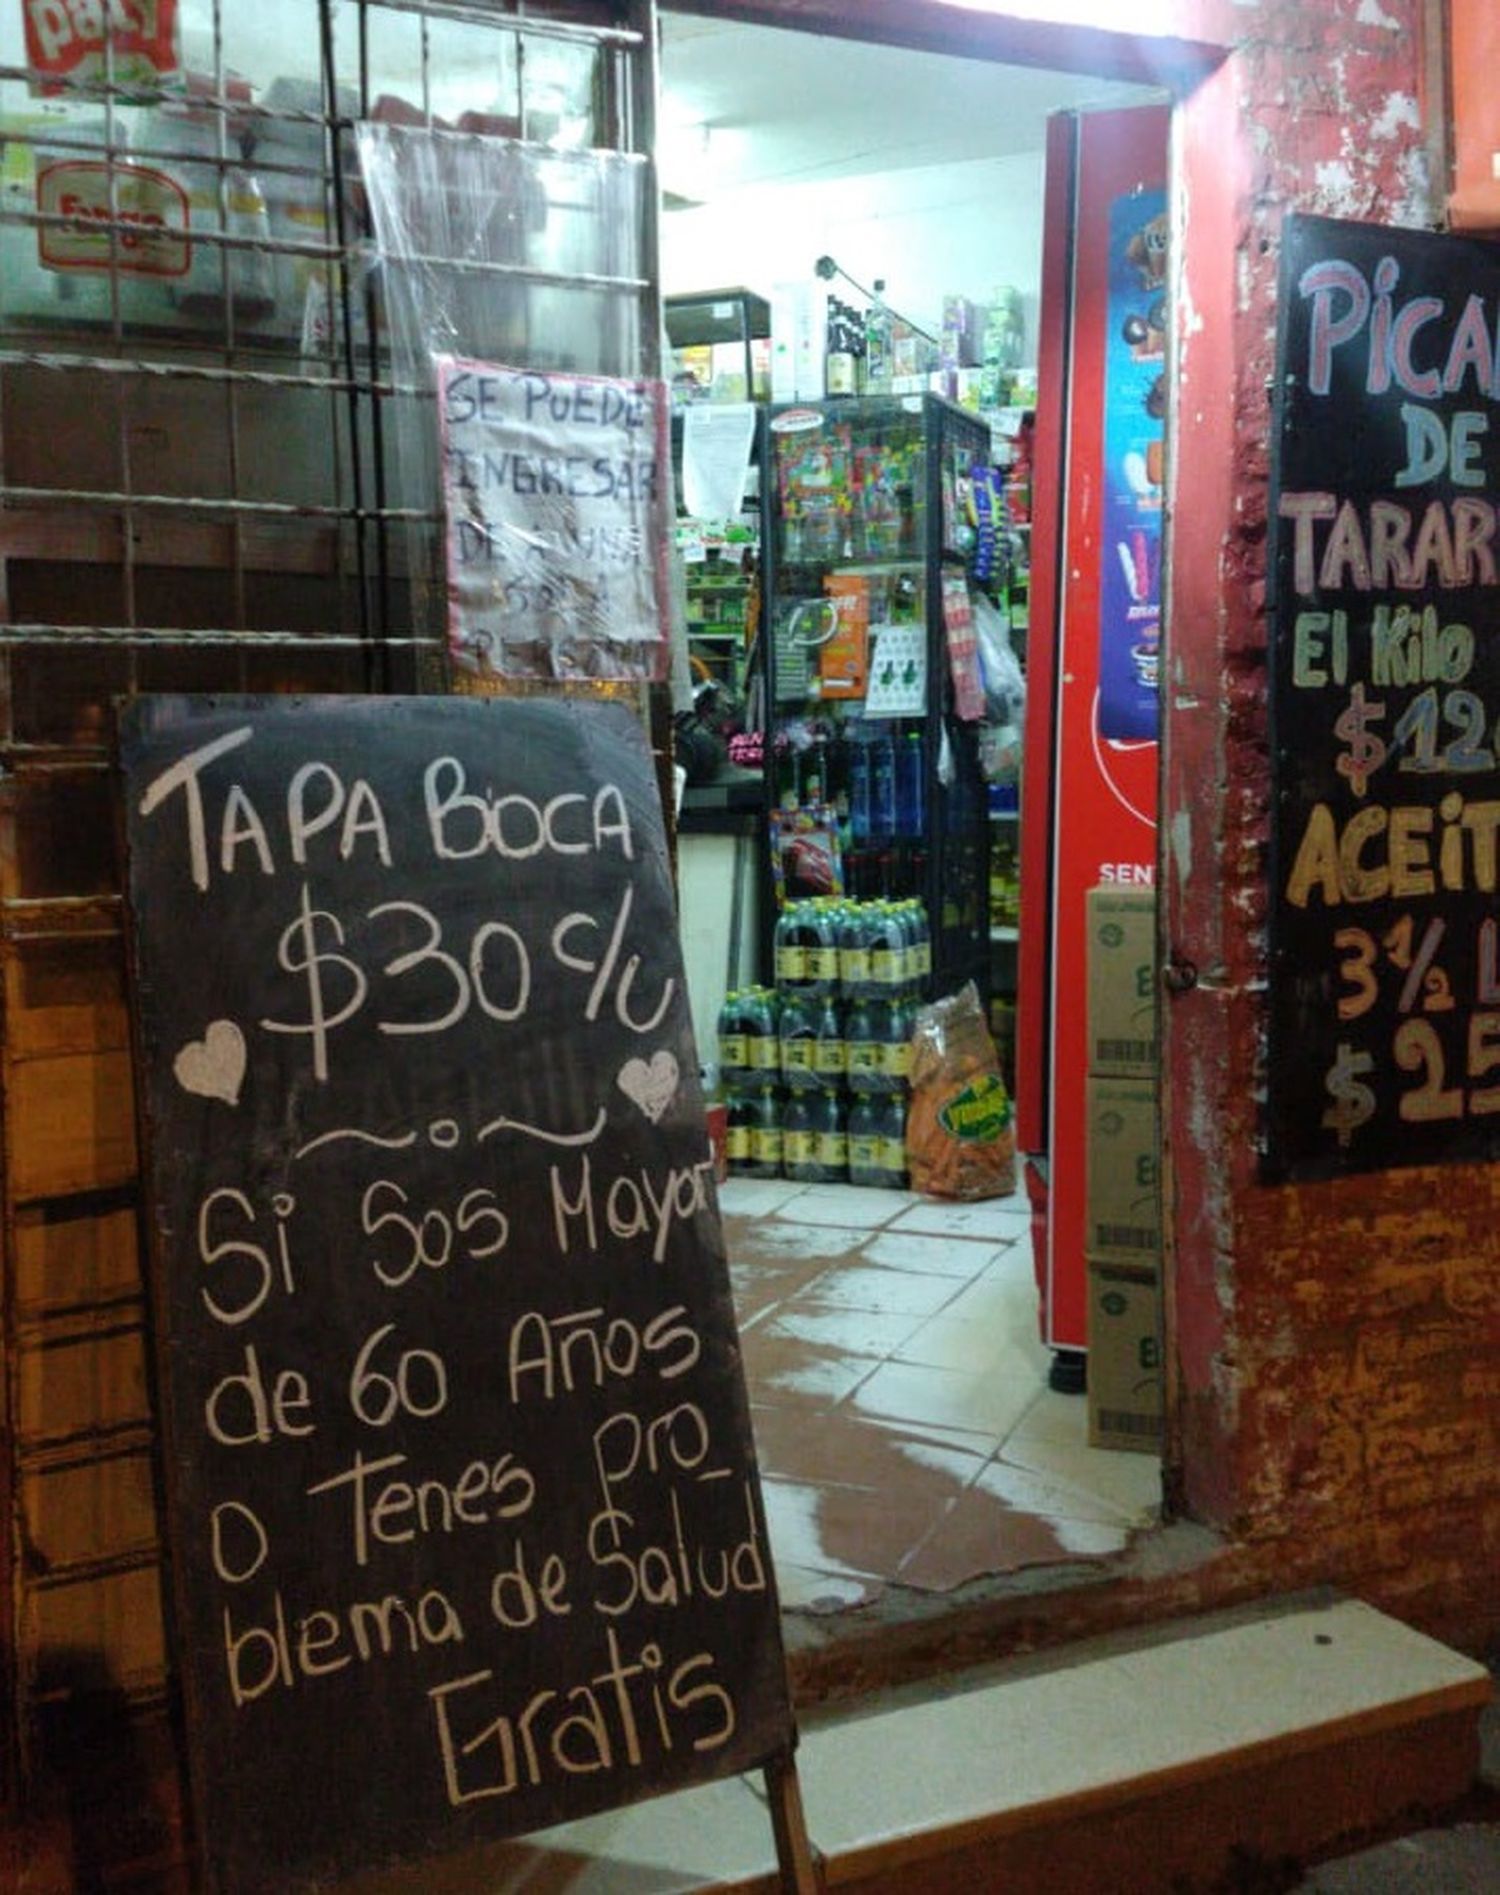 paty
Fargo
SE PUEDE
INGRESAR
DE A UNA
TAPA BOCA
$30 c/u
Si Sos Mayor
de 60 Años
o Tenes pro_
blema de Salud
Gratis
SEN
PiCA
DE
TARAR
El Kilo
$12
ACEiT
3 1/2 L
$25